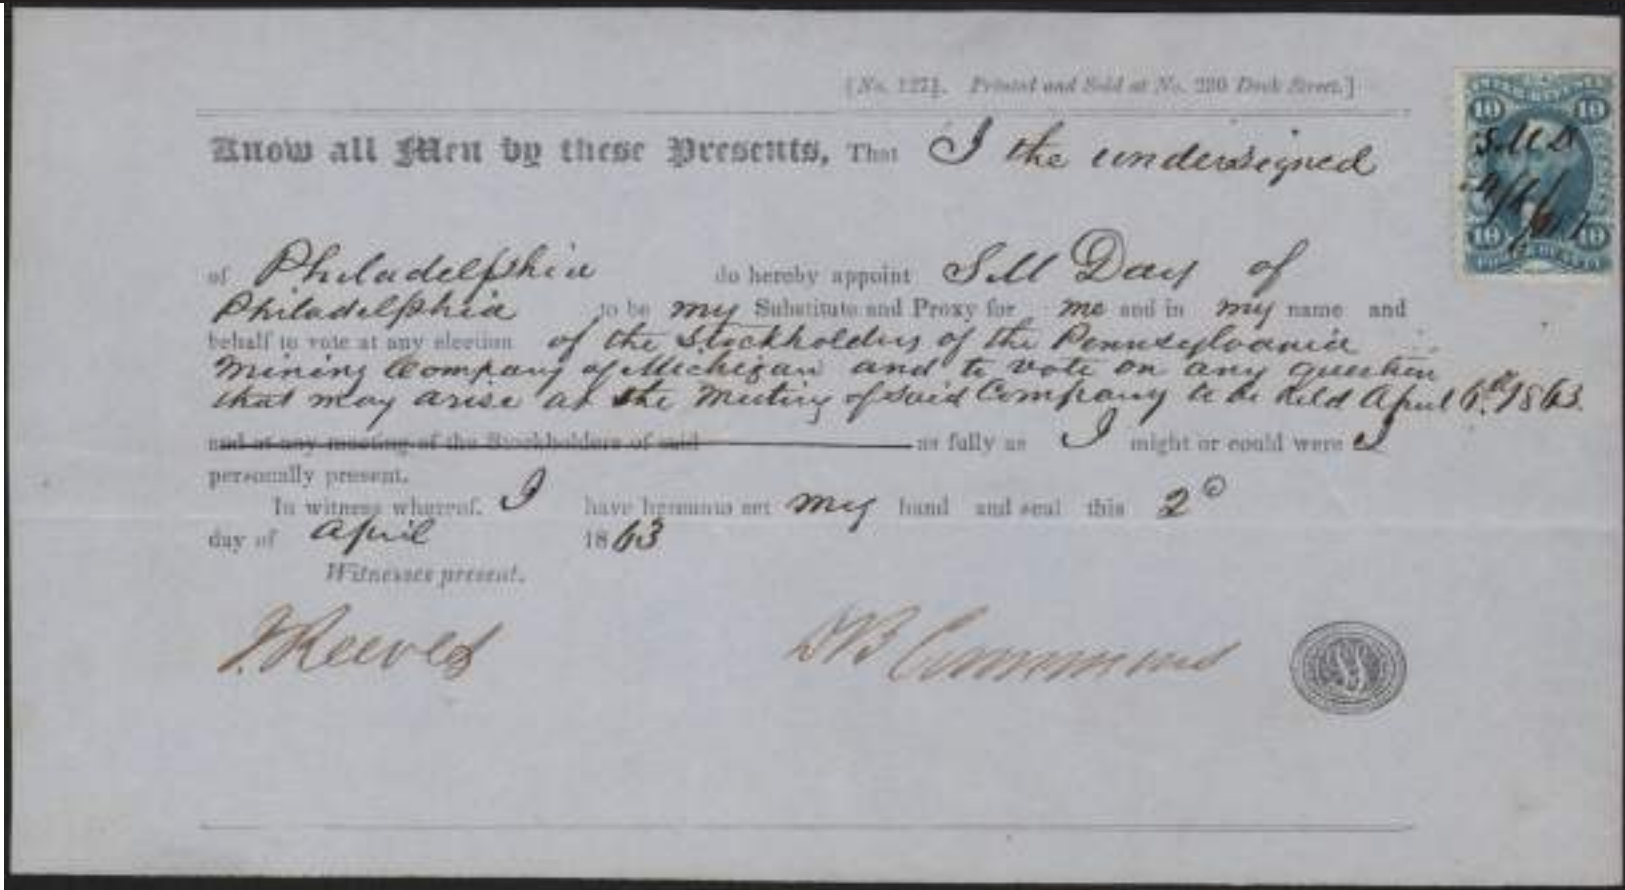 [No. 127½. Printed and Sold at No. 230 Dock Street.]
Know all Men by these Presents, That I the undersigned
of Philadelphia do hereby appoint S M Day of
Philadelphia to be my Substitute and Proxy for me and in my name and
behalf to vote at any election of the Stockholders of the Pennsylvania
Mining Company of Michigan and to vote on any question
that may arise at the Meeting of said Company to be held April 6th 1863.
and at any meeting of the Stockholders of said as fully as I might or could were I
personally present.
In witness whereof, I have hereunto set my hand and seal this 2
day of April 1863
Witnesses present.
J. Reeves D B Cummins
10 10
S.M.D
10 10